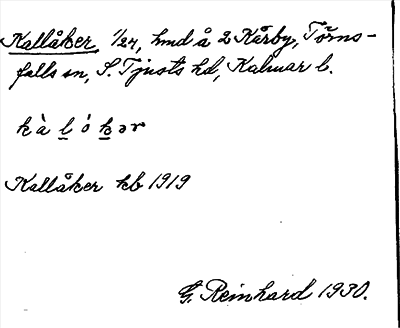 Kallåker, 1/24, hmd å 2 Kårby, Törns-
falls sn, S. Tjusts hd, Kalmar l.
kàl̲ókər
Kallåker kb 1919
G. Reinhard 1930.